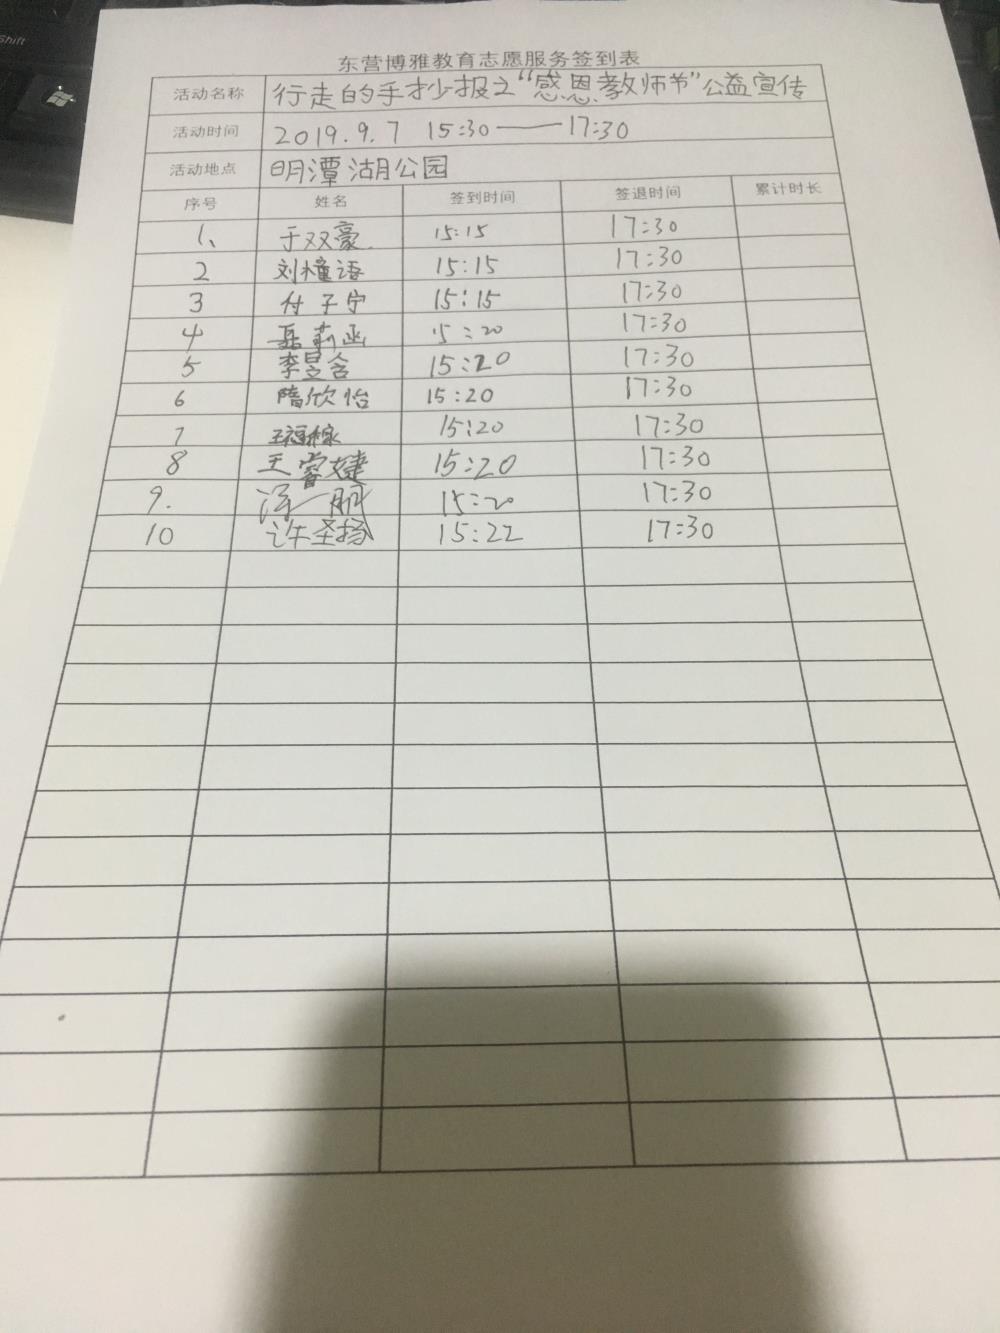 Shift
东营博雅教育志愿服务签到表
活动名称 行走的手抄报之“感恩教师节”公益宣传
活动时间 2019.9.7 15:30——17:30
活动地点 明潭湖公园
序号 姓名 签到时间 签退时间 累计时长
1、 于双豪 15:15 17:30
2 刘橦语 15:15 17:30
3 付子宁 15:15 17:30
4 聂莉函 15:20 17:30
5 李昱含 15:20 17:30
6 隋欣怡 15:20 17:30
7 15:20 17:30
8 王睿婕 15:20 17:30
9. 15:20 17:30
10 许圣扬 15:22 17:30